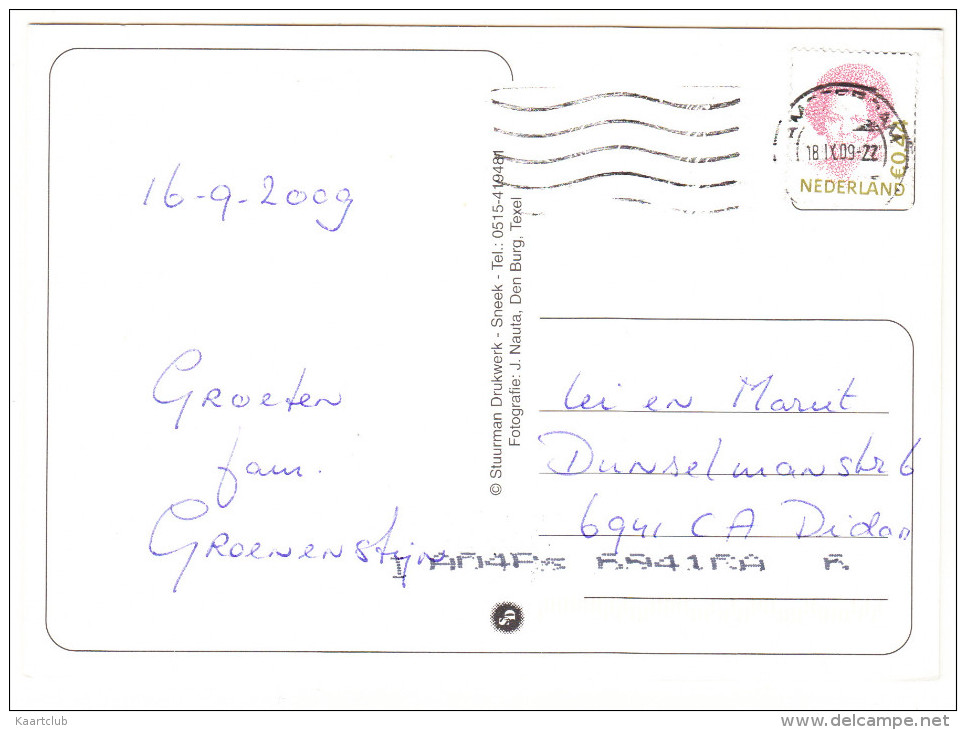 16-9-2009
Groeten
fam.
Groenenstijn
© Stuurman Drukwerk - Sneek - Tel.: 0515-419481
Fotografie: J. Nauta, Den Burg, Texel
18 IX.09-22
€0,44
NEDERLAND
en Marut
Dunselmanstr 6
6941 CA Didam
SD
Kaartclub
www.delcampe.net